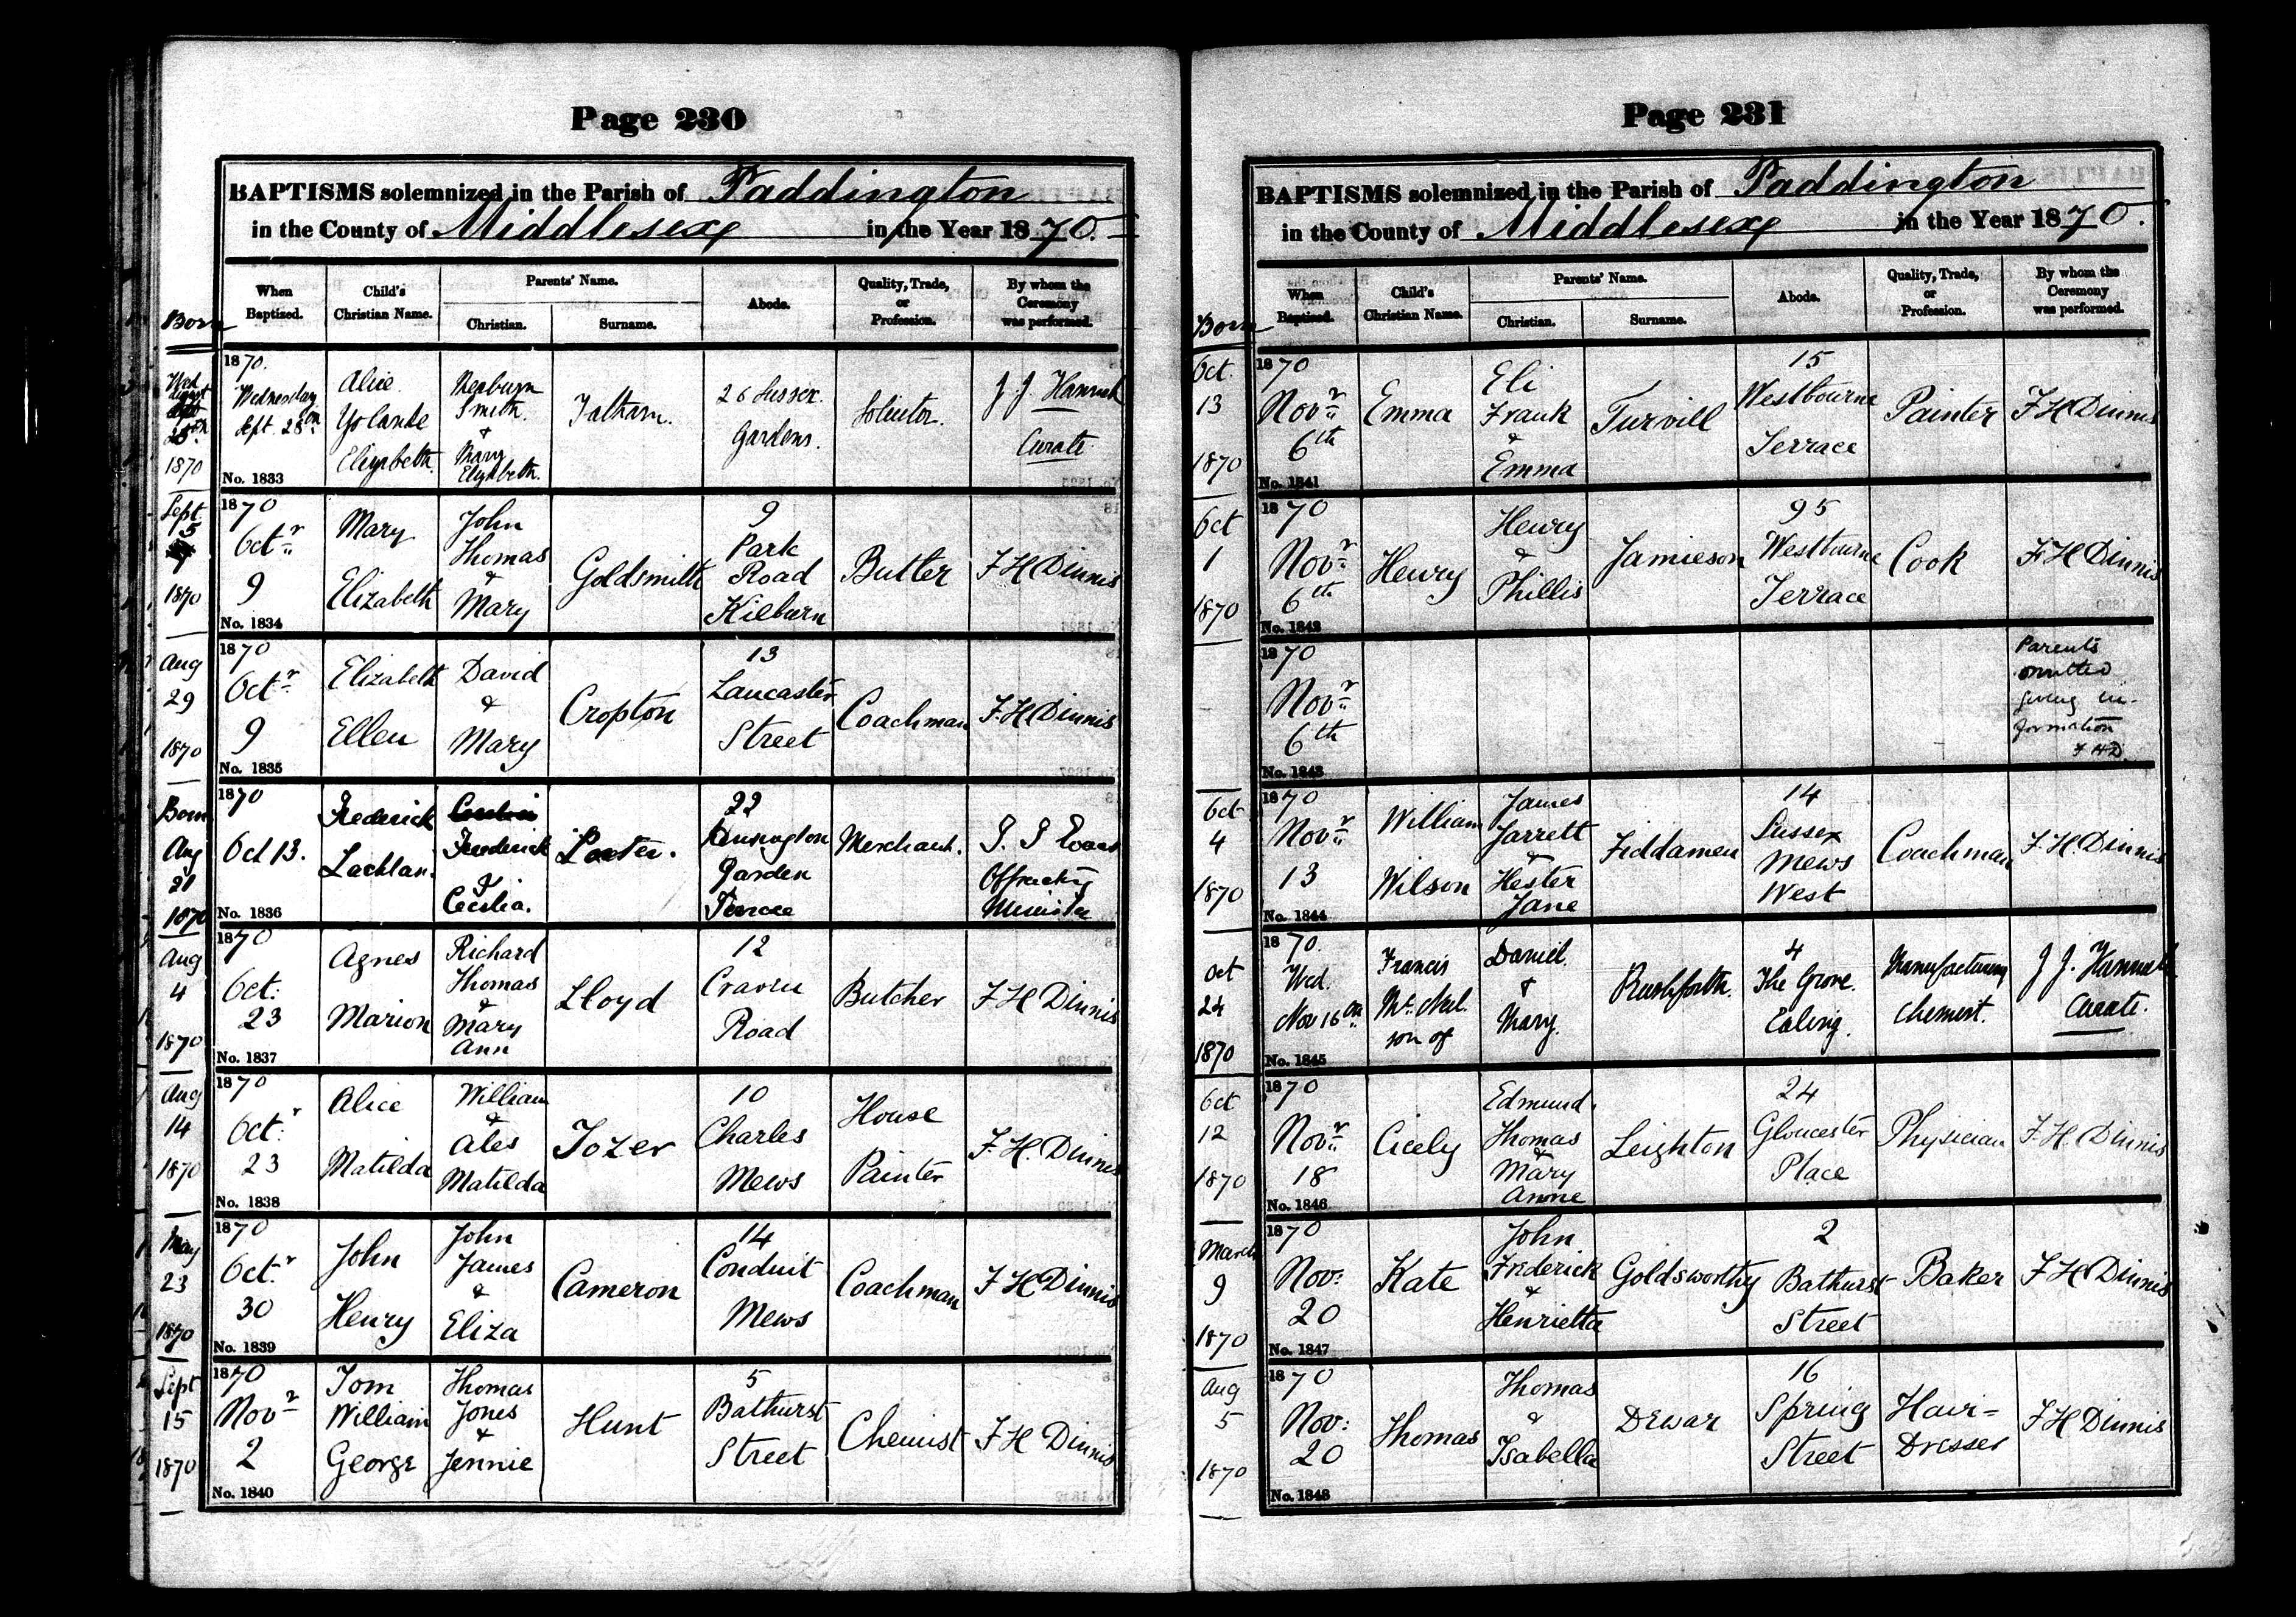 Page 230
BAPTISMS solemnized in the Parish of Paddington
in the County of Middlesex in the Year 1870.
Born
When Baptized.
Child's Christian Name.
Parents' Name.
Christian.
Surname.
Abode.
Quality, Trade, or Profession.
By whom the Ceremony was performed.
Wed
1870
1870.
Wednesday
Sept. 28th
No. 1833
Alice
Yolande
Elizabeth
Smith
&
Mary
Elizabeth.
Tatham.
26 Sussex
Gardens.
Solicitor.
J. J. Hannah
Curate
Sept.
15
1870
1870
Octr
9
No. 1834
Mary
Elizabeth
John
Thomas
&
Mary
Goldsmith
9
Park
Road
Kilburn
Butler
F H Dinnis
Aug
29
1870
1870
Octr
9
No. 1835
Elizabeth
Ellen
David
&
Mary
Cropton
13
Lancaster
Street
Coachman
F. H Dinnis
Born
Aug
21
1870
1870
Oct 13.
No. 1836
Frederick
Lachlan.
Frederick
&
Cecilia.
22
Kensington
Garden
Terrace
Merchant.
Officiating
Minister
Aug
4
1870
1870
Oct:
23
No. 1837
Agnes
Marion
Richard
Thomas
&
Mary
Ann
Lloyd
12
Craven
Road
Butcher
F H Dinnis
Aug
14
1870
1870
Octr
23
No. 1838
Alice
Matilda
William
&
Matilda
Tozer
10
Charles
Mews
House
Painter
F. H. Dinnis
May
23
1870
1870
Octr
30
No. 1839
John
Henry
John
James
&
Eliza
Cameron
14
Conduit
Mews
Coachman
F H Dinnis
Sept
15
1870
1870
Novr
2
No. 1840
Tom
William
George
Thomas
Jones
&
Jennie
Hunt
5
Bathurst
Street
Chemist
F H Dinnis
Page 231
BAPTISMS solemnized in the Parish of Paddington
in the County of Middlesex in the Year 1870.
Born
When Baptized.
Child's Christian Name.
Parents' Name.
Christian.
Surname.
Abode.
Quality, Trade, or Profession.
By whom the Ceremony was performed.
Oct.
13
1870
1870
Novr
6th
No. 1841
Emma
Eli
Frank
&
Emma
Turvill
15
Westbourne
Terrace
Painter
F H Dinnis
Oct
1
1870
1870
Novr
6th
No. 1842
Henry
Henry
&
Phillis
Jamieson
95
Westbourne
Terrace
Cook
F H Dinnis
1870
Novr
6th
No. 1843
Parents
omitted
giving in-
formation
F H D
Oct
4
1870
1870
Novr
13
No. 1844
William
Wilson
James
Jarrett
&
Hester
Jane
Fiddamen
14
Sussex
Mews
West
Coachman
F. H. Dinnis
Oct
24
1870
1870.
Wed.
Nov 16th
No. 1845
Francis
son of
Daniel
&
Mary.
Rushforth.
4
The Grove.
Ealing.
Manufacturing
Chemist.
J. J. Hannah
Curate.
Oct
12
1870
1870
Novr
18
No. 1846
Cicely
Edmund
Thomas
&
Mary
Anne
Leighton
24
Gloucester
Place
Physician
F. H. Dinnis
March
9
1870
1870
Nov:
20
No. 1847
Kate
John
Frederick
&
Henrietta
Goldsworthy
2
Bathurst
Street
Baker
F H Dinnis
Aug
5
1870
1870
Nov:
20
No. 1848
Thomas
Thomas
&
Isabella
Dewar
16
Spring
Street
Hair=
Dresser
F H Dinnis